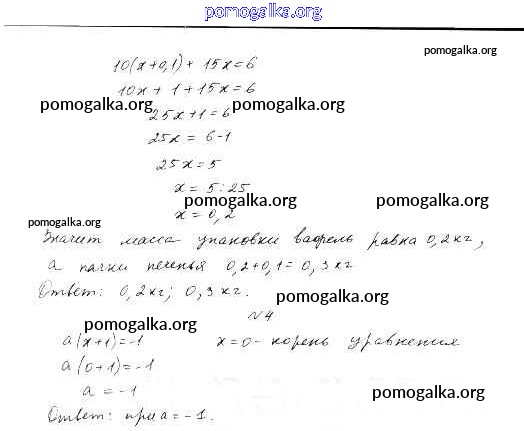 pomogalka.org
pomogalka.org
10(x+0,1) + 15x=6
10x + 1 + 15x = 6
pomogalka.org pomogalka.org
25x+1=6
25x = 6-1
25x = 5
x = 5:25
pomogalka.org pomogalka.org
x = 0,2
pomogalka.org
Значит масса упаковки вафель равна 0,2кг,
а пачки печенья 0,2+0,1=0,3кг
Ответ: 0,2кг; 0,3кг.
pomogalka.org
№4
pomogalka.org
a(x+1)=-1 x=0- корень уравнения
a(0+1)=-1
a = -1
pomogalka.org
Ответ: при a=-1.